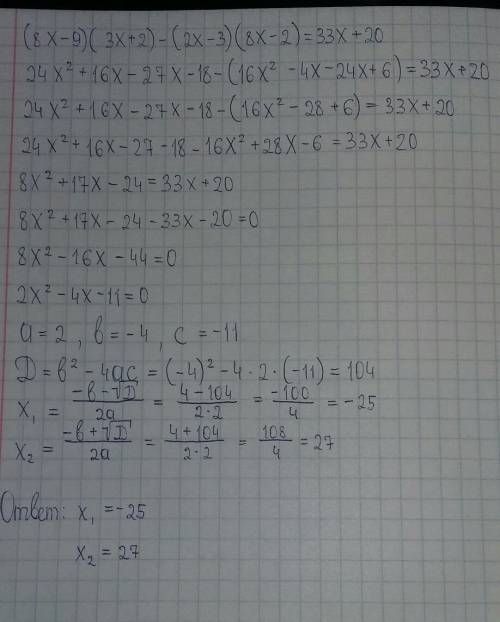 (8x-9)(3x+2)-(2x-3)(8x-2)=33x+20
24x²+16x-27x-18-(16x²-4x-24x+6)=33x+20
24x²+16x-27x-18-(16x²-28+6)=33x+20
24x²+16x-27-18-16x²+28x-6=33x+20
8x²+17x-24=33x+20
8x²+17x-24-33x-20=0
8x²-16x-44=0
2x²-4x-11=0
a=2, в=-4, c=-11
D=в²-4ac=(-4)²-4·2·(-11)=104
x₁ = (-в-√D)/2a = (4-104)/2·2 = -100/4 = -25
x₂ = (-в+√D)/2a = (4+104)/2·2 = 108/4 = 27
Ответ: x₁=-25
x₂=27